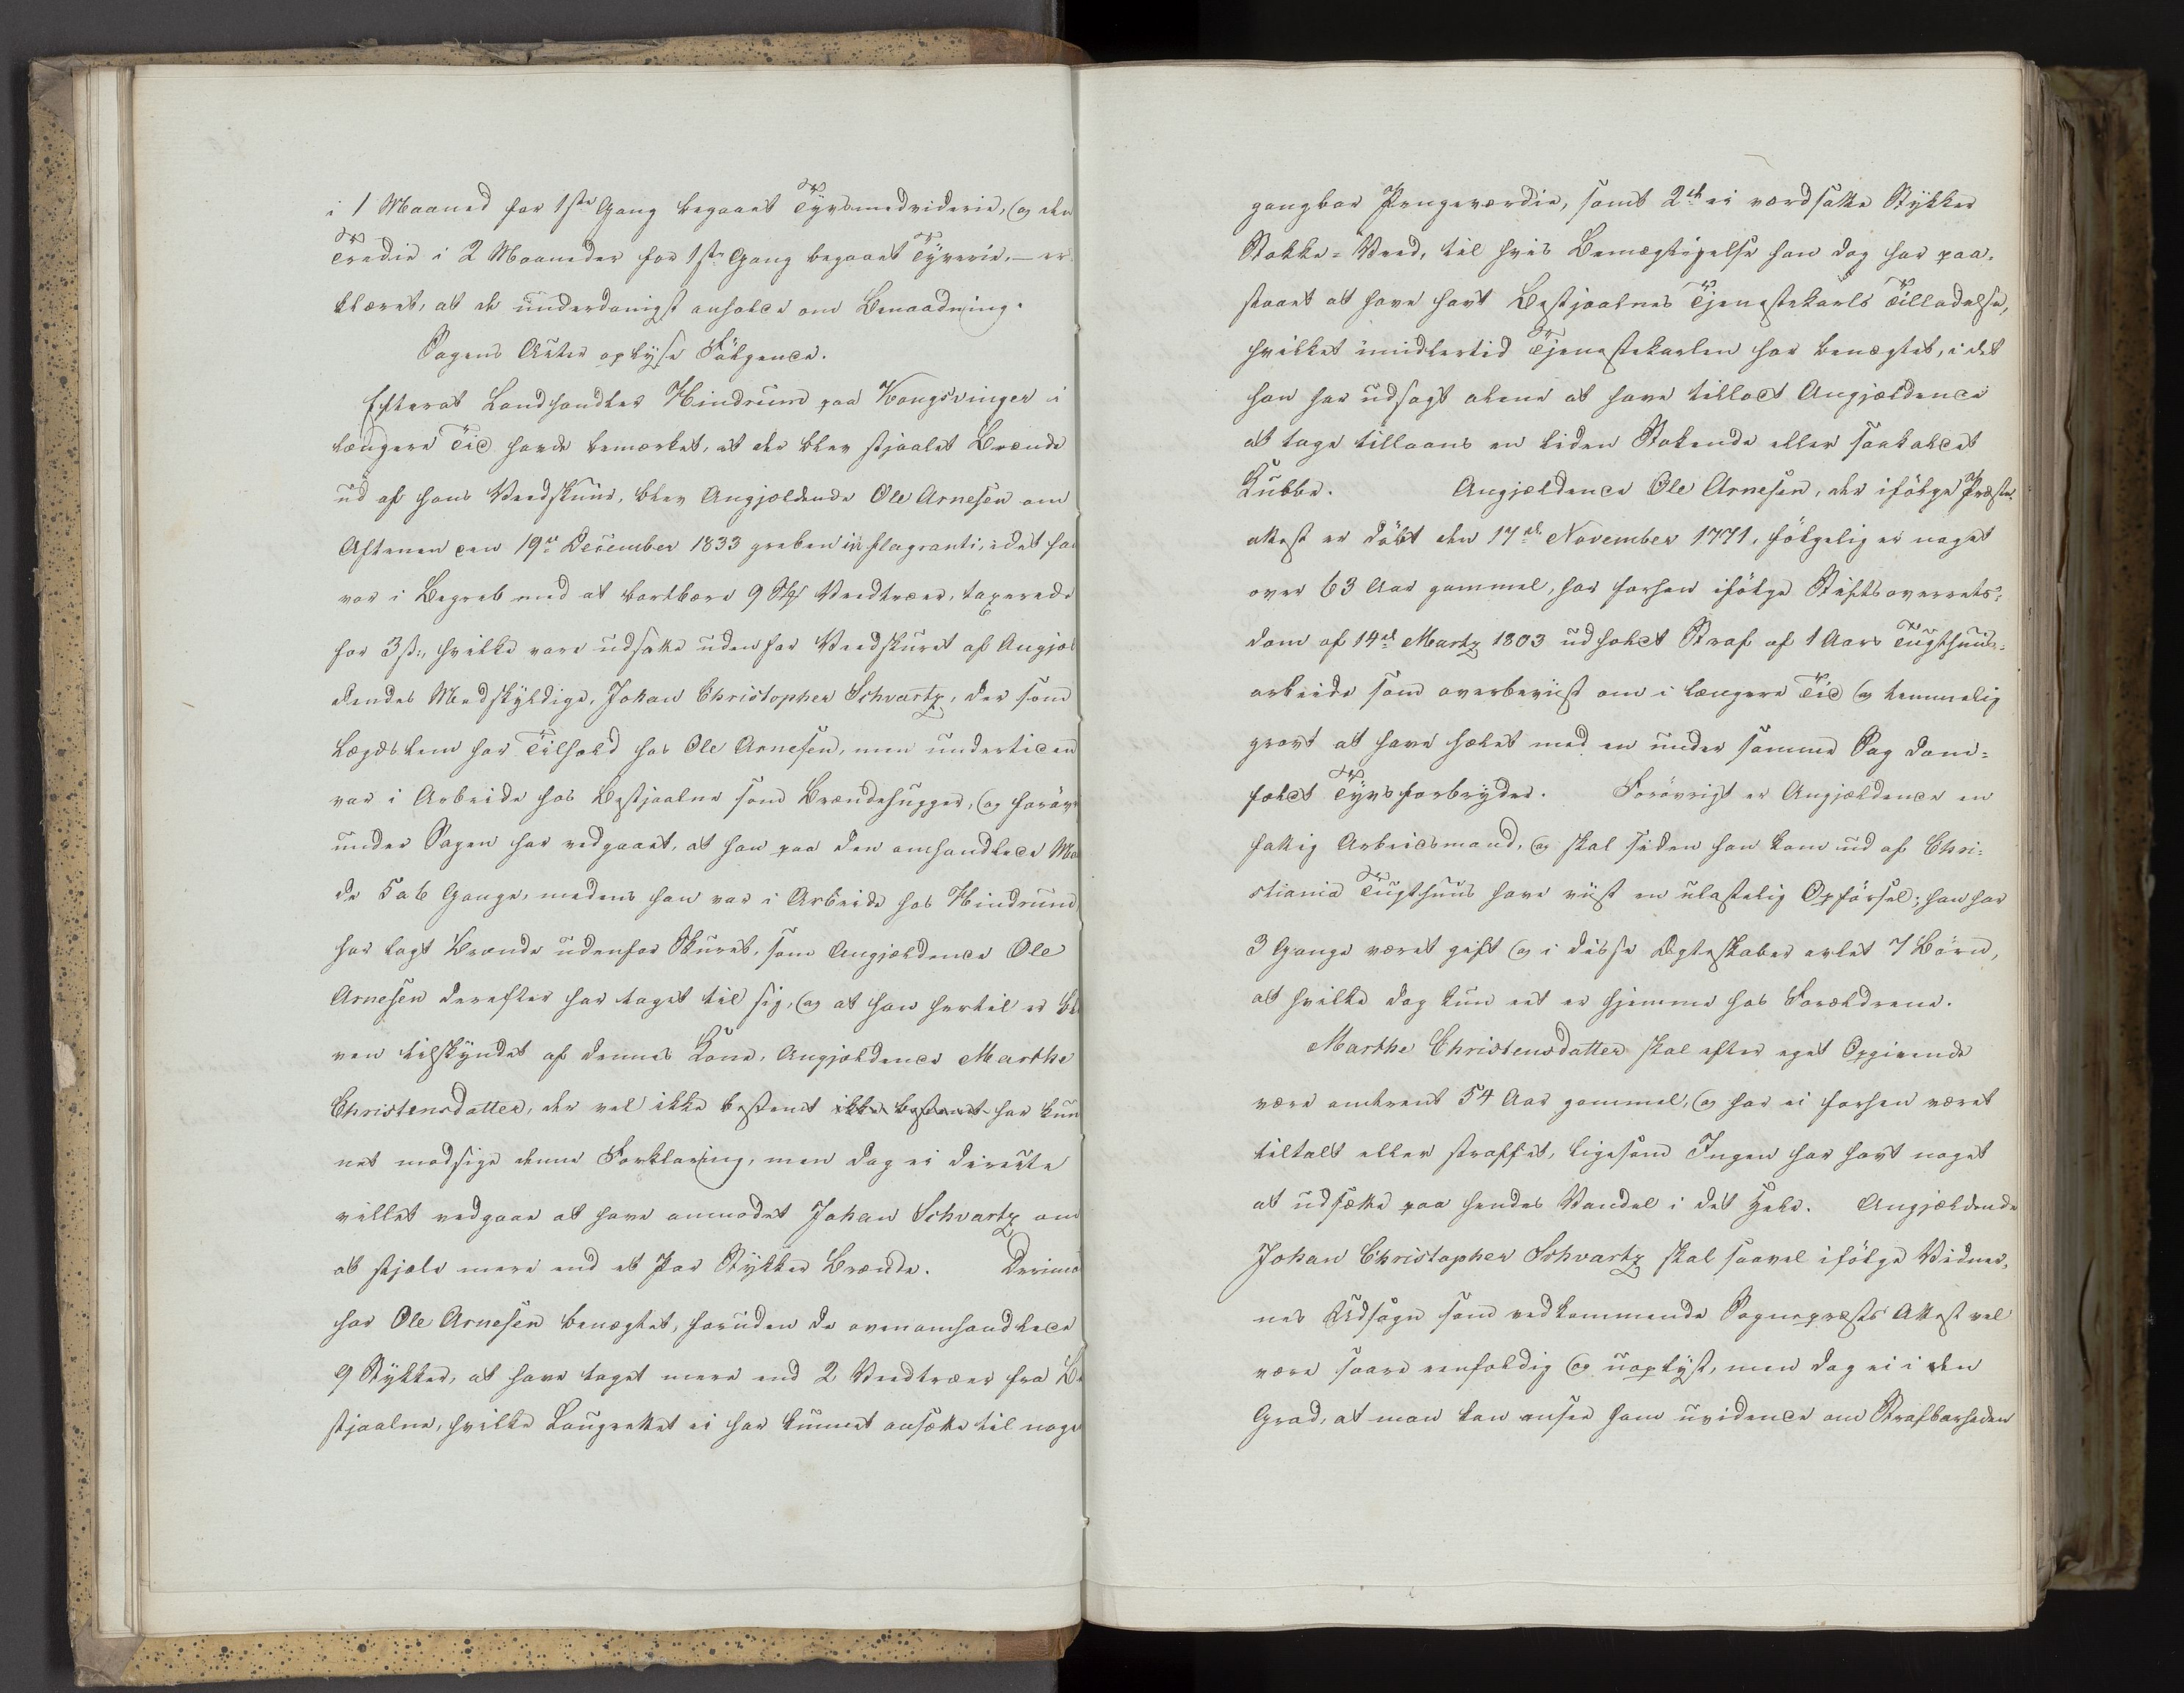 i 1 Maaned for 1ste Gang begaaet Tyvsmedviderie, og den
Tredie i 2 Maaneder for 1ste Gang begaaet Tyverie, — er
klæret, at de underdanigst anholde om Benaadning.
Sagens Acter oplyse Fölgende.
Efterat Landhandler Hindrum paa Kongsvinger i
længere Tid havde bemærket, at der blev stjaalet Brænde
ud af hans Veedskuur, blev Angjeldende Ole Arnesen om
Aftenen den 19de December 1833 greben in flagranti, idet ha
var i Begreb med at bortbære 9 Stkr Veedtræer, taxerede
for 3 s., hvilke vare udsatte udenfor Veedskuret af Angjel
dendes Medskyldige, Johan Christopher Schvartz, der som
Lægdslem har Tilhold hos Ole Arnesen, men undertiden
var i Arbeide hos Bestjaalne som Brændehugger, og foröv
under Sagen har vedgaaet, at han paa den omhandlede Ma
de 5 a 6 Gange, medens han var i Arbeide hos Hindrum
har lagt Brænde udenfor Skuret, som Angjeldende Ole
Arnesen derefter har taget til sig, og at han hertil er ble
ven tilskyndet af dennes Kone, Angjeldende Marthe
Christensdatter, der vel ikke bestemt ikke bestemt har kun
net modsige denne Forklaring, men dog ei directe
villet vedgaae at have anmodet Johan Schvartz om
at stjæle mere end et Par Stykker Brænde. Derimod
har Ole Arnesen benægtet, foruden de ovenomhandlede
9 Stykker, at have taget mere end 2 Veedtræer fra Be
stjaalne, hvilke Laugrettet ei har kunnet ansætte til noge
gangbar Pengeværdie, samt 2de ei værdsatte Stykker
Stokke-Veed, til hvis Bemægtigelse han dog har paa-
staaet at have havt Bestjaalnes Tjenestekarls Tilladelse,
hvilket imidlertid Tjenestekarlen har benægtet, i det
han har udsagt alene at have tilladt Angjeldende
at tage tillaans en liden Stokende eller saakaldet
Kubbe. Angjeldende Ole Arnesen, der ifölge Præste-
attest er döbt den 17de November 1771, fölgelig er noget
over 63 Aar gammel, har forhen ifölge Stiftsoverrets-
dom af 14de Martz 1803 udholdt Straf af 1 Aars Tugthuus-
arbeide som overbeviist om i længere Tid og temmelig
grovt at have hælet med en under samme Sag dom-
fældt Tyvsforbryder. Forövrigt er Angjeldende en
fattig Arbeidsmand, og skal siden han kom ud af Chri-
stiania Tugthuus have viist en ulastelig Opförsel; han har
3 Gange været gift og i disse Ægteskaber avlet 7 Börn,
af hvilke dog kun eet er hjemme hos Forældrene.
Marthe Christensdatter skal efter eget Opgivende
være omtrent 54 Aar gammel, og har ei forhen været
tiltalt eller straffet, ligesom Ingen har havt noget
at udsætte paa hendes Vandel i det Hele. Angjeldende
Johan Christopher Schvartz skal saavel ifölge Vidner-
nes Udsagn som vedkommende Sognepræsts Attest vel
være saare eenfoldig og uoplyst, men dog ei i den
Grad, at man kan ansee ham uvidende om Strafbarheden